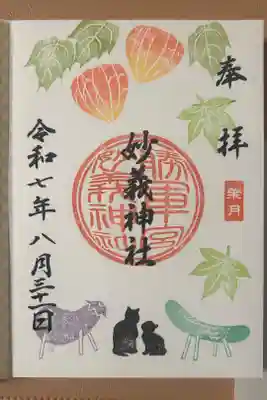 奉拝
葉月
妙義神社
令和七年八月三十一日